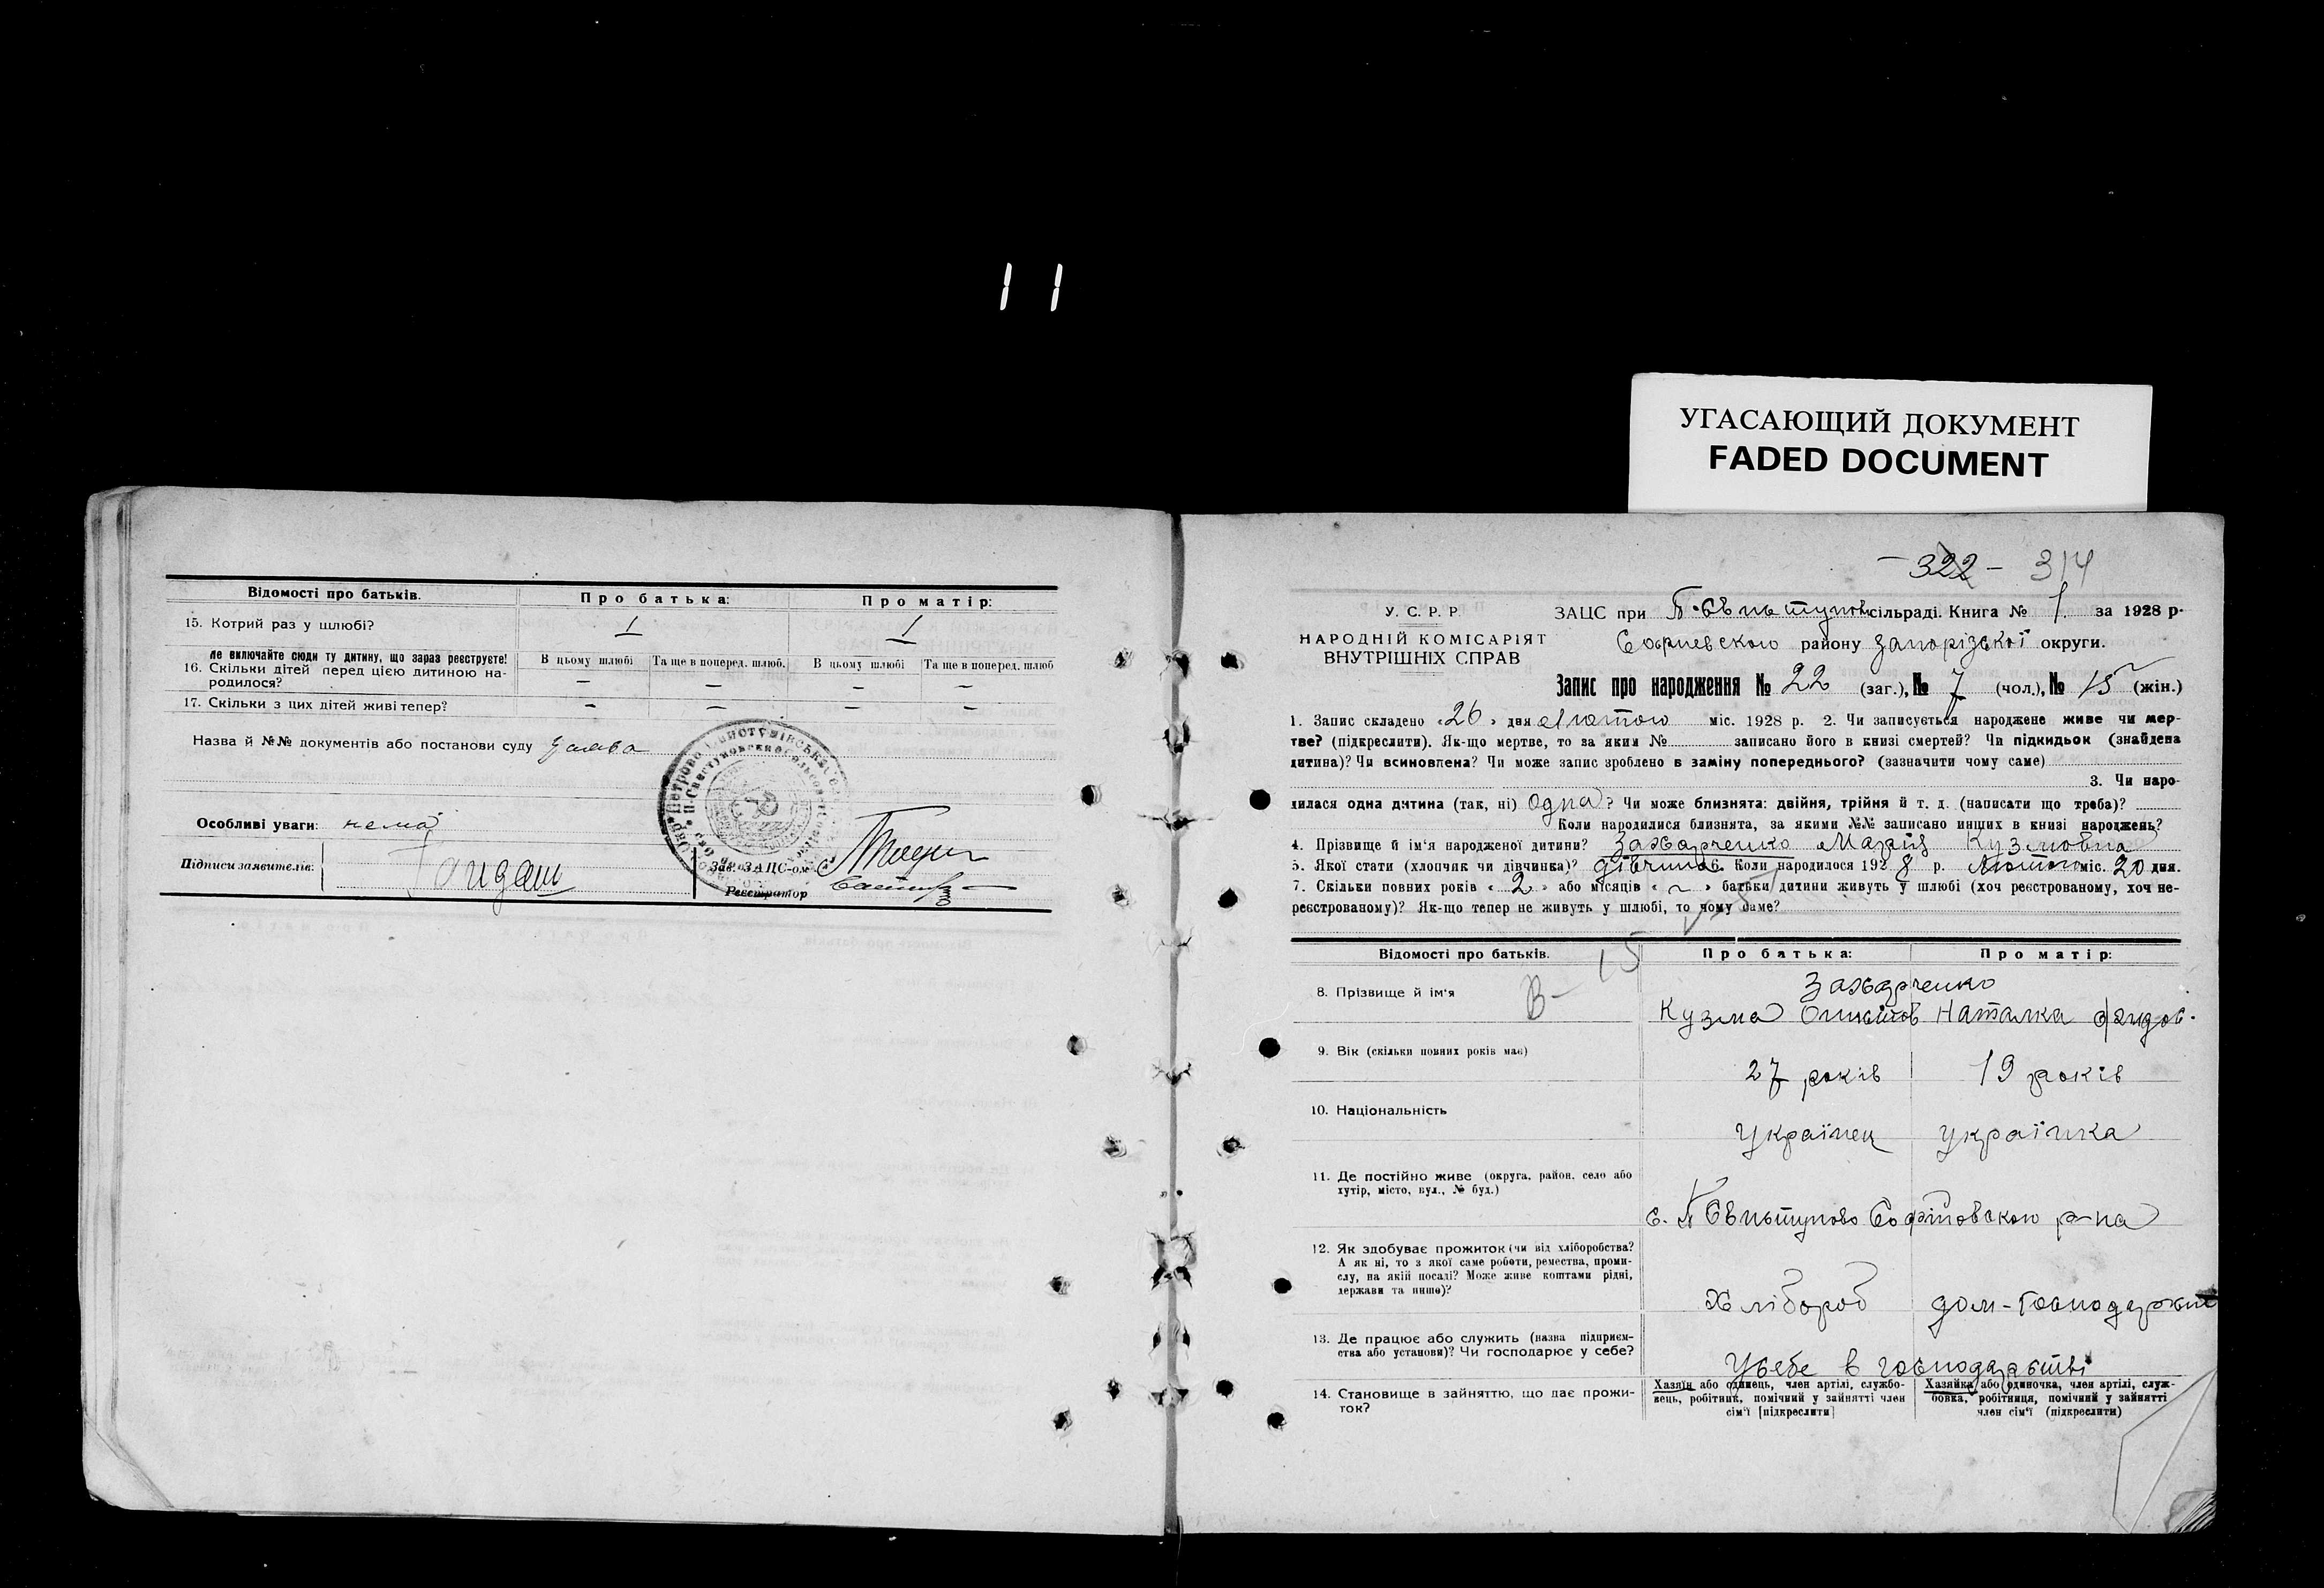 1 1
УГАСАЮЩИЙ ДОКУМЕНТ
FADED DOCUMENT
Відомості про батьків.
Про батька:
Про матір:
15. Котрий раз у шлюбі?
1
1
не включайте сюди ту дитину, що зараз реєструєте!
16. Скільки дітей перед цією дитиною на-
родилося?
В цьому шлюбі
Та ще в поперед. шлюб.
В цьому шлюбі
Та ще в поперед. шлюб
—
—
—
—
17. Скільки з цих дітей живі тепер?
—
—
—
—
Назва й №№ документів або постанови суду заява
Особливі уваги: нема
Підписи заявителів:
Зав. ЗАЦС-ом
Реєстратор
- 322 - 314
У. С. Р. Р.
НАРОДНІЙ КОМІСАРІЯТ
ВНУТРІШНІХ СПРАВ
ЗАЦС при П-Свистунов сільраді. Книга № 1. за 1928 р.
району Запорізької округи.
Запис про народження № 22 (заг.), № 7 (чол.), № 15 (жін.)
1. Запис складено «26» дня лютого міс. 1928 р. 2. Чи записується народжене живе чи мер-
тве? (підкреслити). Як-що мертве, то за яким № записано його в книзі смертей? Чи підкидьок (знайдена
дитина)? Чи всиновлена? Чи може запис зроблено в заміну попереднього? (зазначити чому саме)
3. Чи наро-
дилася одна дитина (так, ні) одна? Чи може близнята: двійня, трійня й т. д. (написати що треба)?
Коли народилися близнята, за якими №№ записано инших в книзі народжень?
4. Прізвище й ім'я народженої дитини? Захарченко Марія Кузмовна
5. Якої стати (хлопчяк чи дівчинка)? дівчина 6. Коли народилося 1928 р. Лютого міс. 20 дня.
7. Скільки повних років «2» або місяців «~» батьки дитини живуть у шлюбі (хоч реєстрованому, хоч не-
реєстрованому)? Як-що тепер не живуть у шлюбі, то чому саме?
Відомості про батьків.
Про батька:
Про матір:
В- 15
8. Прізвище й ім'я
Захарченко
Кузма
Наталка
9. Вік (скільки повних років має)
27 років
19 років
10. Національність
Українец
українка
11. Де постійно живе (округа, район, село або
хутір, місто, вул., № буд.)
с. П Свистуново Софіовского р-на
12. Як здобуває прожиток (чи від хліборобства?
А як ні, то з якої саме роботи, ремества, проми-
слу, на якій посаді? Може живе коштами рідні,
держави та инше)?
Хлібороб
дом-господаркие
13. Де працює або служить (назва підприєм-
ства або установи)? Чи господарює у себе?
Усебе в господарстві
14. Становище в зайняттю, що дає прожи-
ток?
Хазяїн або одинець, член артілі, службо-
вець, робітник, помічний у зайнятті член
сім'ї [підкреслити]
Хазяйка або одиночка, член артілі, служ-
бовка, робітниця, помічний у зайнятті
член сім'ї (підкреслити)